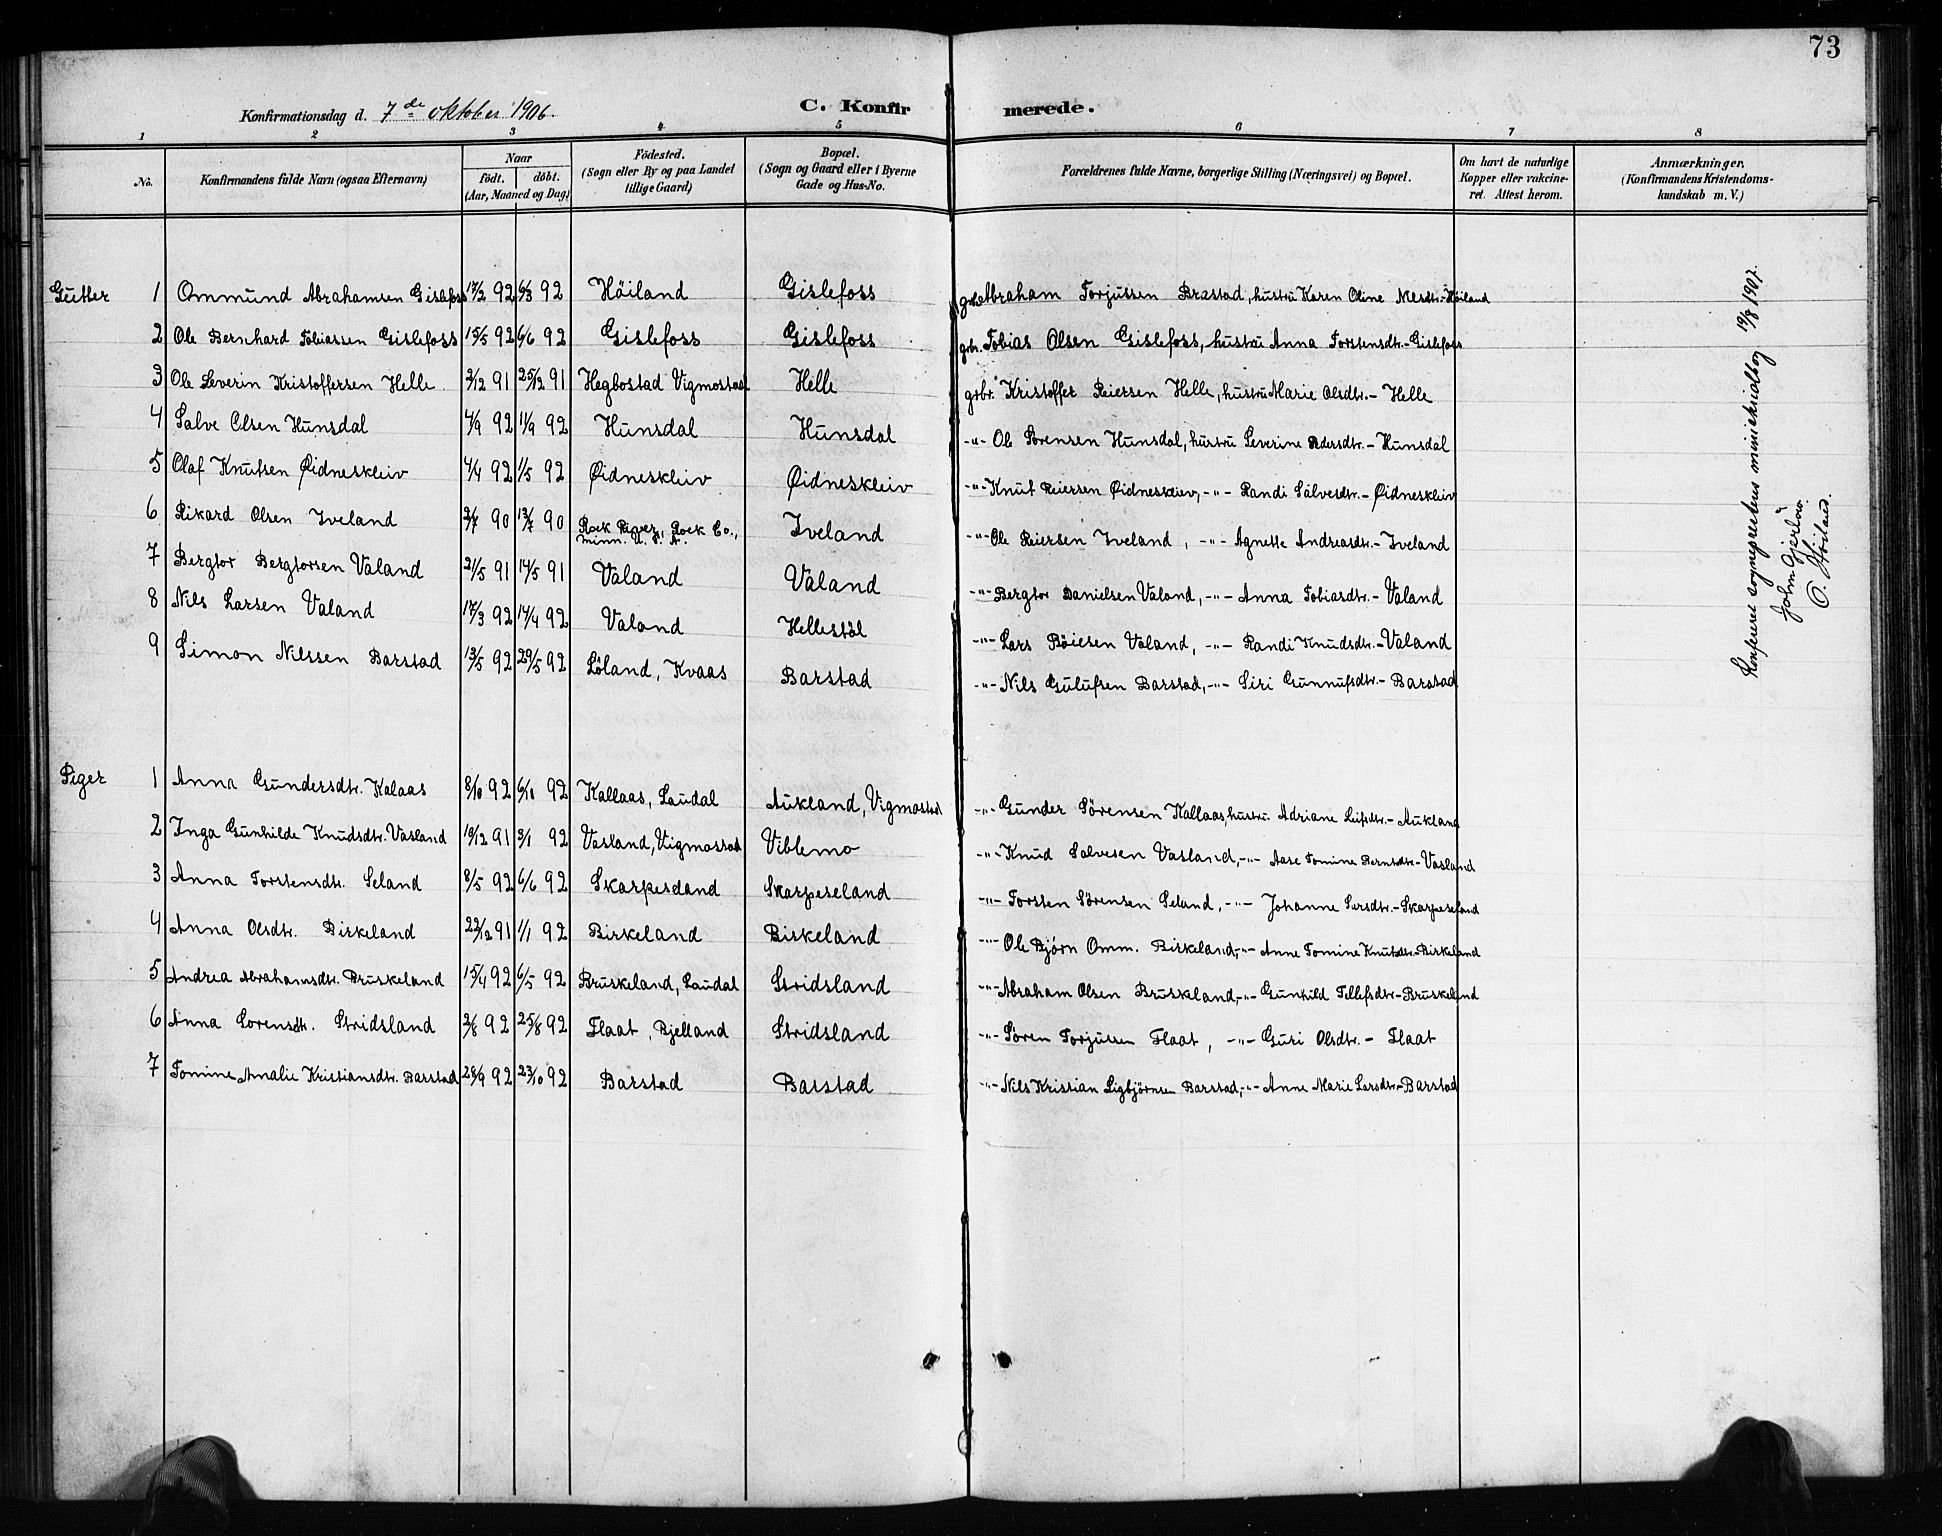 73
Konfirmationsdag d. 7de oktober 1906.
C. Konfirmerede.
1 2 3 4 5 6 7 8
No. Konfirmandens fulde Navn (ogsaa Efternavn) Naar födt. döbt. (Aar, Maaned og Dag) Födested. (Sogn eller By og paa Landet tillige Gaard) Bopæl. (Sogn og Gaard eller i Byerne Gade og Hus-No. Forældrenes fulde Navne, borgerlige Stilling (Næringsvei) og Bopæl. Om havt de naturlige Kopper eller vakcineret. Attest herom. Anmærkninger. (Konfirmandens Kristendomskundskab m. V.)
Gutter 1 Ommund Abrahamsen Gislefoss 17/2 92 6/3 92 Höiland Gislefoss grbr. Abraham Torjussen Brastad, hustru Karen Oline Nilsdtr.- Höiland
2 Ole Bernhard Tobiassen Gislefoss 15/5 92 6/6 92 Gislefoss Gislefoss grbr. Tobias Olsen Gislefoss, hustru Anna Torstensdtr.- Gislefoss
3 Ole Severin Kristoffersen Helle 2/12 91 25/12 91 Hegbostad Vigmostad Helle grbr. Kristoffer Reiersen Helle, hustru Marie Olsdtr.- Helle
4 Salve Olsen Hunsdal 4/9 92 11/9 92 Hunsdal Hunsdal -"- Ole Sörensen Hunsdal, hustru Severine Pedersdtr.- Hunsdal
5 Olaf Knutsen Øidneskleiv 4/4 92 1/5 92 Øidneskleiv Øidneskleiv -"- Knut Reiersen Øidneskleiv, -"- Randi Sälvesdtr.- Øidneskleiv
6 Rikard Olsen Iveland 2/7 90 13/7 90 Rock River, Rock Co., Minn. U. S. A. Iveland -"- Ole Reiersen Iveland, -"- Agnette Andreasdtr.- Iveland
7 Bergtor Bergtorsen Valand 21/5 91 14/5 91 Valand Valand -"- Bergtor Danielsen Valand, -"- Anna Tobiasdtr.- Valand
8 Nils Larsen Valand 17/3 92 14/4 92 Valand Hellestöl -"- Lars Böielsen Valand, -"- Randi Knudsdtr.- Valand
9 Simon Nilssen Barstad 13/5 92 29/5 92 Löland, Kvaas Barstad -"- Nils Gulufsen Barstad, -"- Siri Gunnufsdtr.- Barstad
Piger 1 Anna Gundersdtr. Kalaas 8/10 92 6/11 92 Kallaas, Laudal Aukland, Vigmostad -"- Gunder Sörensen Kallaas, hustru Adriane Leifsdtr.- Aukland
2 Inga Gunhilde Knudsdtr. Vasland 19/12 91 3/1 92 Vasland, Vigmostad Viblemo -"- Knud Salvesen Vasland, -"- Aase Tomine Berntsdtr.- Vasland
3 Anna Torstensdtr. Seland 8/5 92 6/6 92 Skarpesland Skarpeseland -"- Torsten Sörensen Seland, -"- Johanne Larsdtr.- Skarpeseland
4 Anna Olsdtr. Birkeland 22/12 91 1/1 92 Birkeland Birkeland -"- Ole Bjørn Omm. Birkeland, -"- Anne Tomine Knutsdtr.- Birkeland
5 Andrea Abrahamsdtr. Bruskeland 15/4 92 6/5 92 Bruskeland, Laudal Stridsland -"- Abraham Olsen Bruskland, -"- Gunhild Tellefsdtr.- Bruskeland
6 Anna Sorensdtr. Stridsland 2/8 92 25/8 92 Flaat, Bjelland Stridsland -"- Sören Torjussen Flaat, -"- Guri Olsdtr.- Flaat
7 Tomine Amalie Kristiansdtr. Barstad 28/9 92 23/10 92 Barstad Barstad -"- Nils Kristian Sigbjörnsen Barstad, -"- Anne Marie Larsdtr.- Barstad
Konfereret sogneprestens ministerialbog 19/8 1907.
John Gjerlöw
O. Höiland.